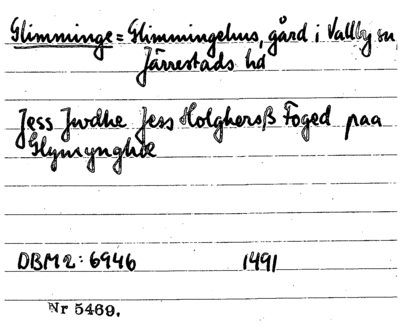 Glimminge = Glimmingehus, gård i Vallby sn,
Järrestads hd
Jess Jwdhe Jess Holghersß Foged paa
Glymynghæ
DBM2: 6946 1491
Nr 5469.